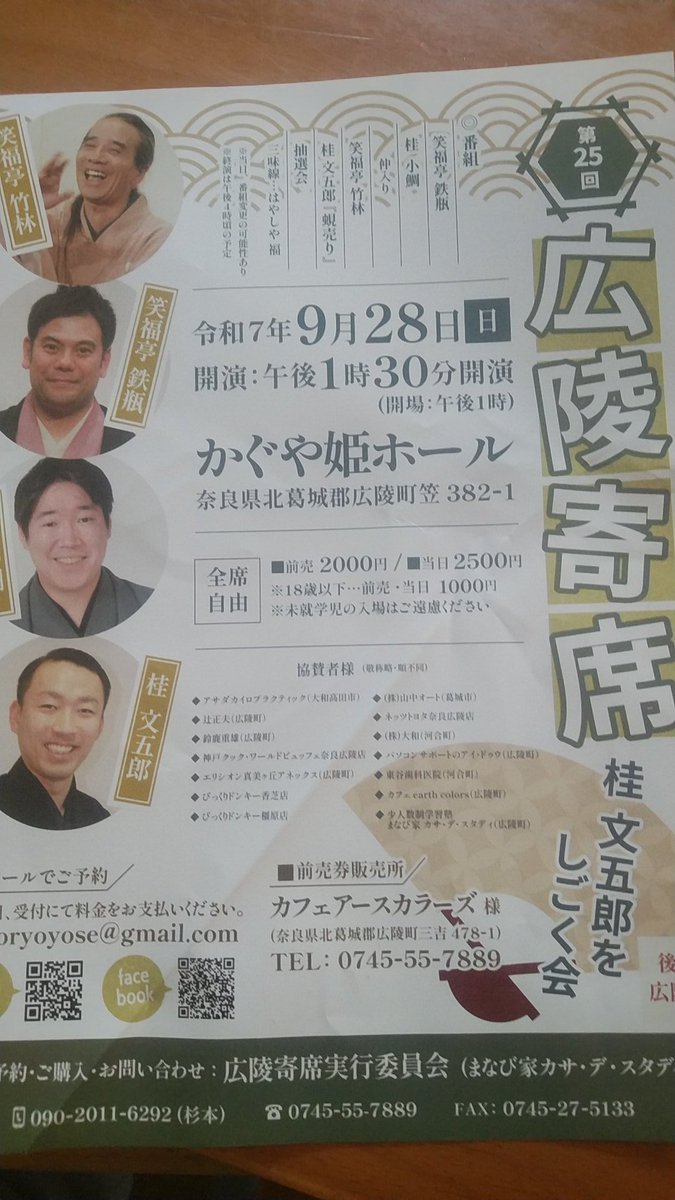 第25回
広陵寄席
桂 文五郎を
しごく会
◎番組
笑福亭 鉄瓶
桂 小鯛
仲入り
笑福亭 竹林
桂 文五郎『蜆売り』
抽選会
三味線…はやしや福
※当日、番組変更の可能性あり
※終演は午後4時頃の予定
笑福亭 竹林
笑福亭 鉄瓶
桂 文五郎
令和7年9月28日日
開演:午後1時30分開演
(開場:午後1時)
かぐや姫ホール
奈良県北葛城郡広陵町笠 382-1
全席
自由
■前売 2000円 / ■当日 2500円
※18歳以下…前売・当日 1000円
※未就学児の入場はご遠慮ください
協賛者様 (敬称略・順不同)
◆アサダカイロプラクティック(大和高田市)
◆辻正夫(広陵町)
◆鈴鹿重雄(広陵町)
◆神戸クック・ワールドビュッフェ奈良広陵店
◆エリシオン真美ヶ丘アネックス(広陵町)
◆びっくりドンキー香芝店
◆びっくりドンキー橿原店
◆(株)山中オート(葛城市)
◆ネッツトヨタ奈良広陵店
◆(株)大和(河合町)
◆パソコンサポートのアイ・ドゥウ(広陵町)
◆東谷歯科医院(河合町)
◆カフェearth colors(広陵町)
◆少人数制学習塾
まなび家 カサ・デ・スタディ(広陵町)
ールでご予約
、受付にて料金をお支払いください。
oryoyose@gmail.com
face
book
■前売券販売所
カフェアースカラーズ 様
(奈良県北葛城郡広陵町三吉 478-1)
TEL: 0745-55-7889
後
広陵
予約・ご購入・お問い合わせ:広陵寄席実行委員会(まなび家カサ・デ・スタデ
090-2011-6292(杉本) ☎0745-55-7889 FAX: 0745-27-5133